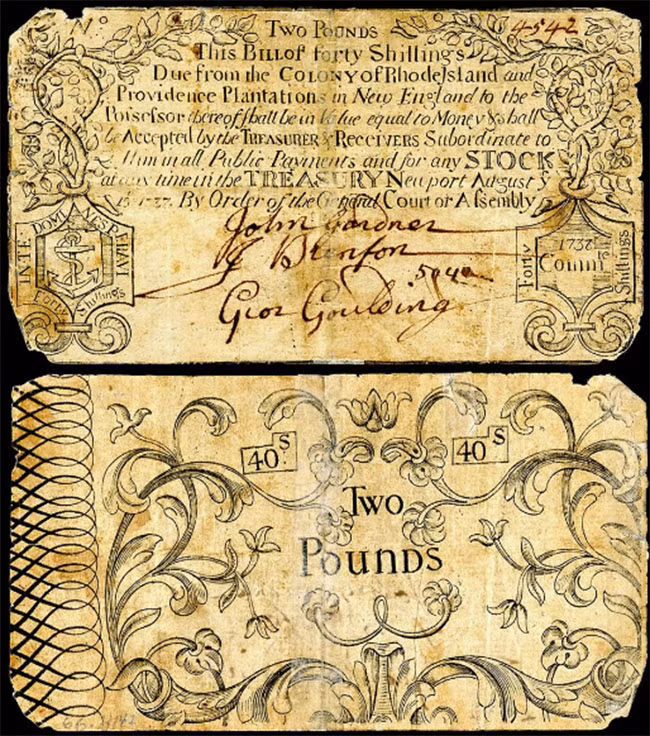 No
4542
Two Pounds
This Bill of forty Shillings
Due from the COLONY of Rhode Island and
Providence Plantations in New England to the
Possessor thereof shall be in Value equal to Money & shall
be Accepted by the TREASURER & Receivers Subordinate to
Him in all Public Payments and for any STOCK
at any time in the TREASURY Newport August ye
1737. By Order of the General Court or Assembly
John Gardner
Brenton
Geor Goulding
IN TE DOMINE SPERAVI
Forty Shillings
Forty
1737
Commte
Shillings
40S
40S
Two
Pounds